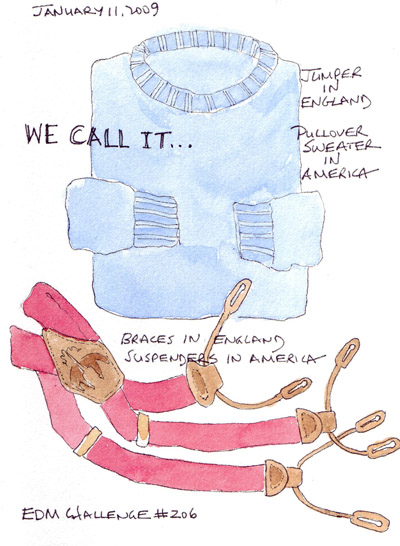 JANUARY 11, 2009
JUMPER
IN
ENGLAND
WE CALL IT...
PULLOVER
SWEATER
IN
AMERICA
BRACES IN ENGLAND
SUSPENDERS IN AMERICA
EDM CHALLENGE #206